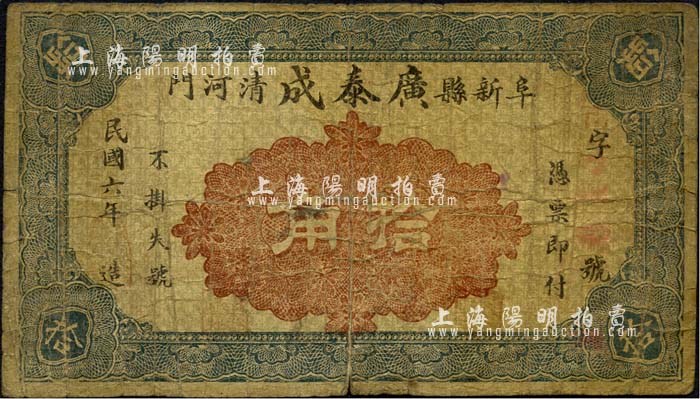 阜新縣廣泰成清河門
字
號
憑票即付
拾角
不掛失號
民國六年造
上海陽明拍賣
www.yangmingauction.com
上海陽明拍賣
www.yangmingauction.com
上海陽明拍賣
www.yangmingauction.com